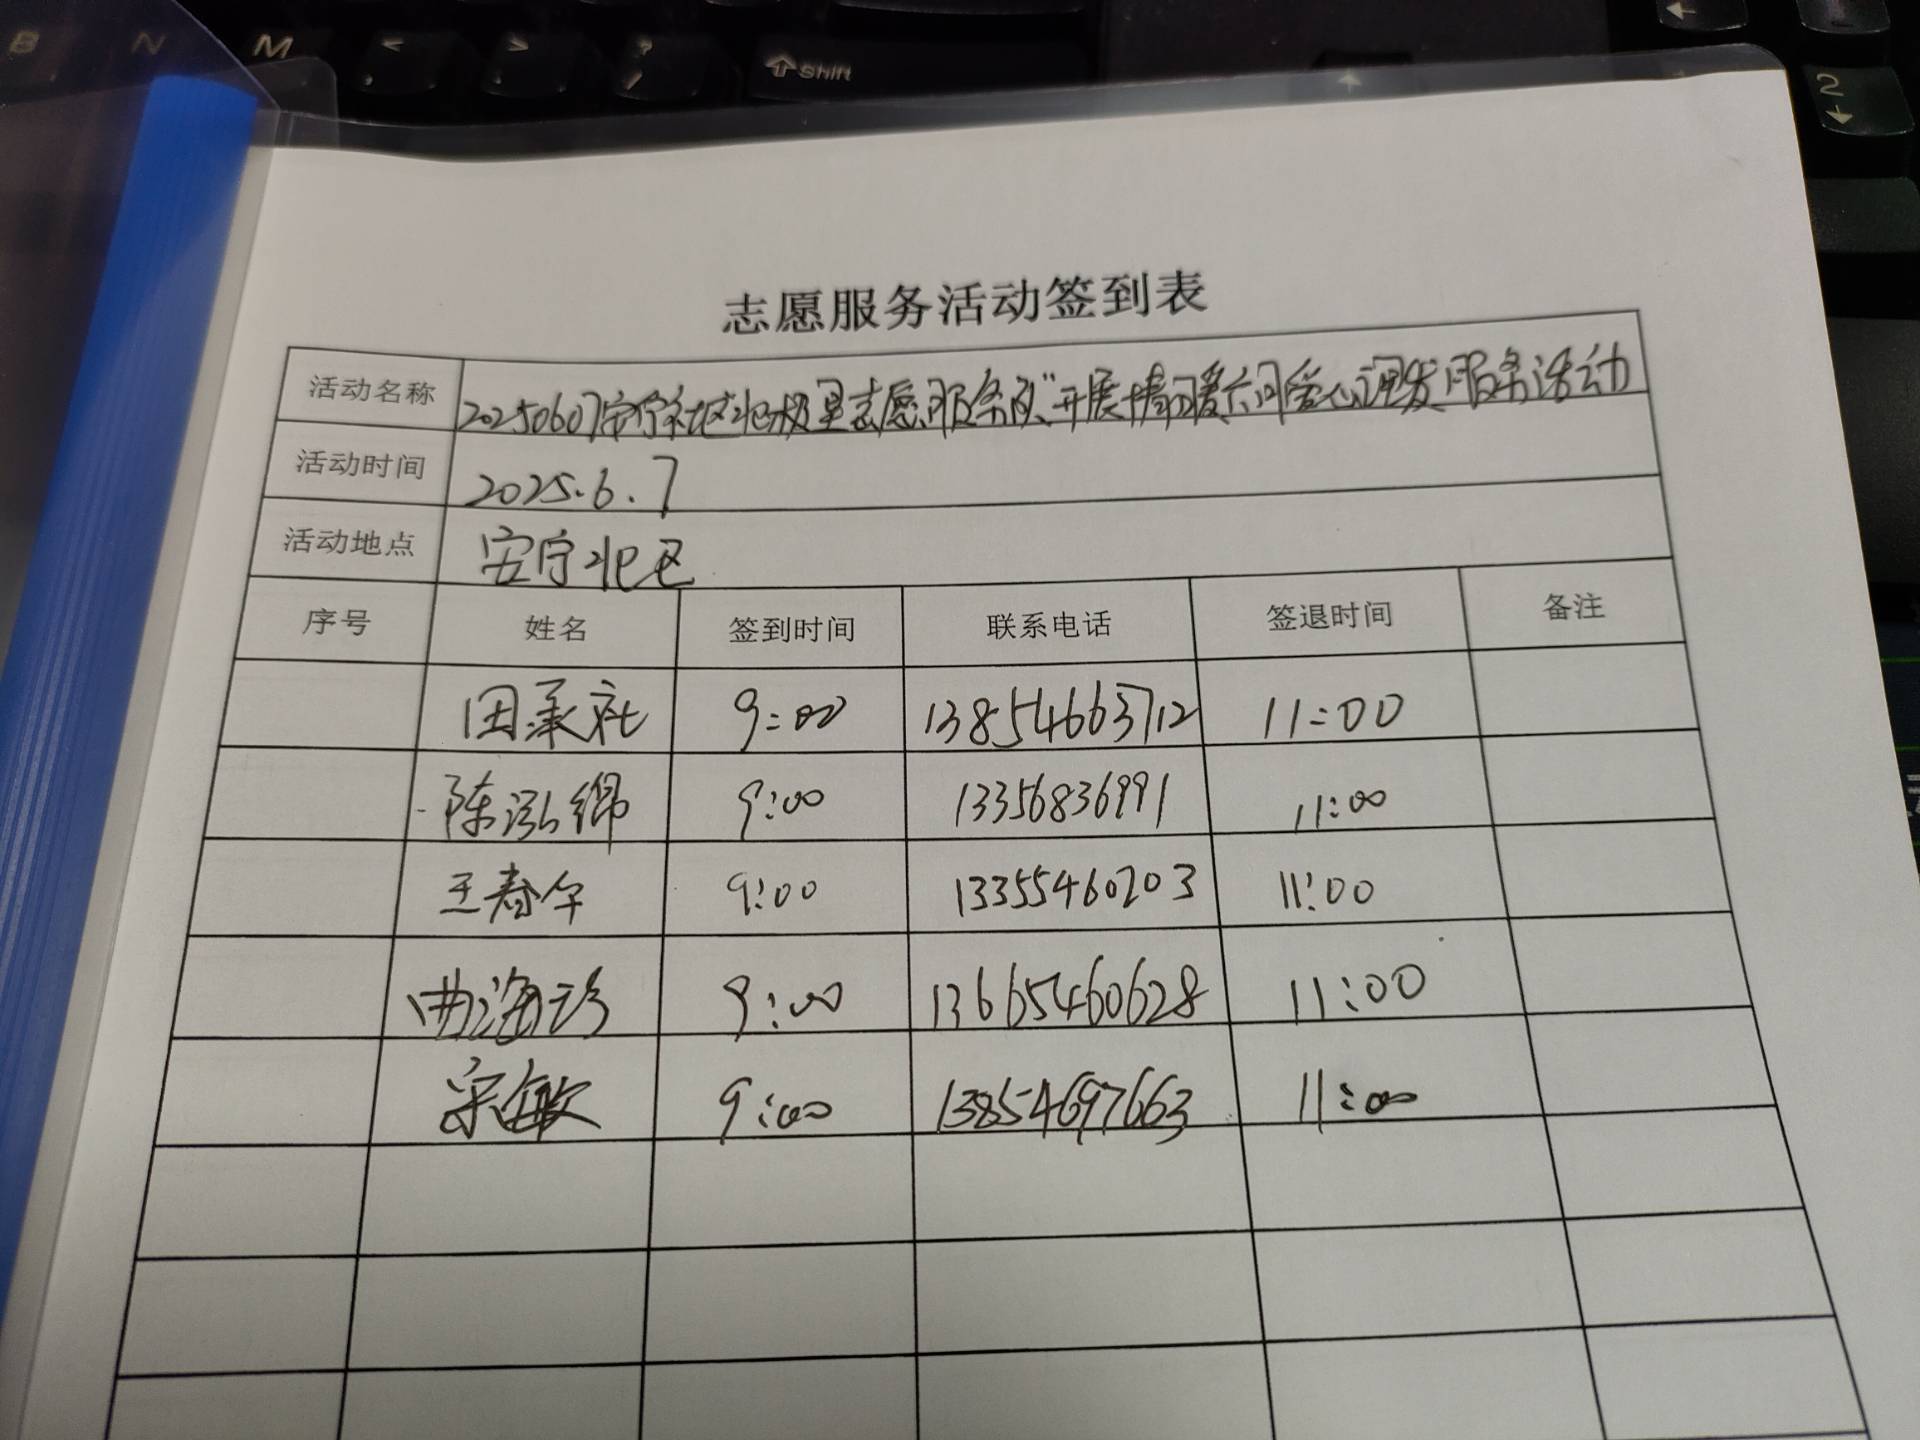 B N M < , > . ? / Shift
2
志愿服务活动签到表
活动名称 20250607安宁社区北极星志愿服务队"开展情暖六间爱心理发服务活动
活动时间 2025.6.7
活动地点 安宁北区
序号 姓名 签到时间 联系电话 签退时间 备注
田承社 9:00 13854663712 11:00
陈泓绵 9:00 13356836991 11:00
王春午 9:00 13355460203 11:00
曲海珍 9:00 13665460628 11:00
宋敏 9:00 13854697663 11:00